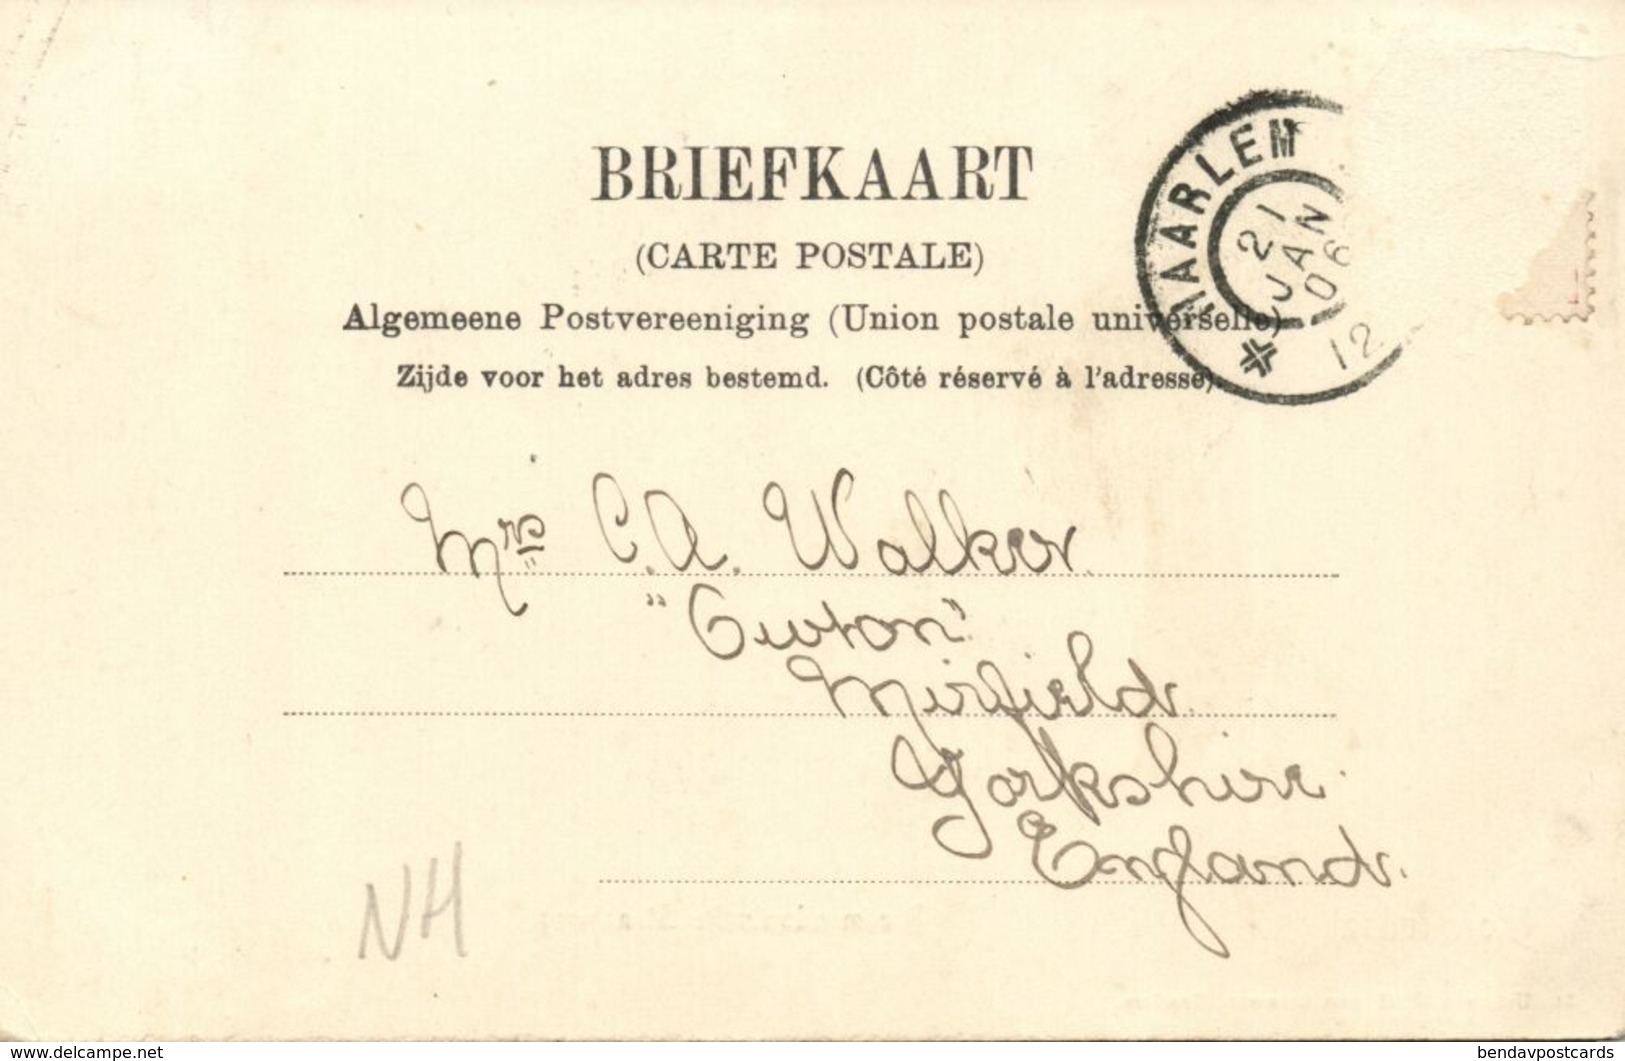 BRIEFKAART
(CARTE POSTALE)
Algemeene Postvereeniging (Union postale universelle)
Zijde voor het adres bestemd. (Côté réservé à l'adresse).
HAARLEM
21
JAN
06
12
Mrs C. A. Walker
Mirfield
Yorkshire
England.
NH
www.delcampe.net
bendavpostcards